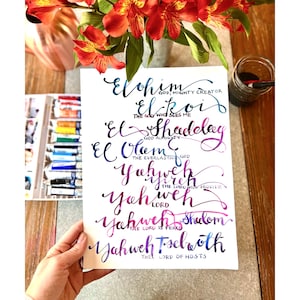 Elohim
GOD, MIGHTY CREATOR
El-Roi
THE GOD WHO SEES ME
El Shadday
GOD ALMIGHTY
El Olam
THE EVERLASTING GOD
Yahweh
Yireh
THE LORD WILL PROVIDE
Yahweh
LORD
Yahweh Shalom
THE LORD IS PEACE
Yahweh Tsebaoth
THE LORD OF HOSTS